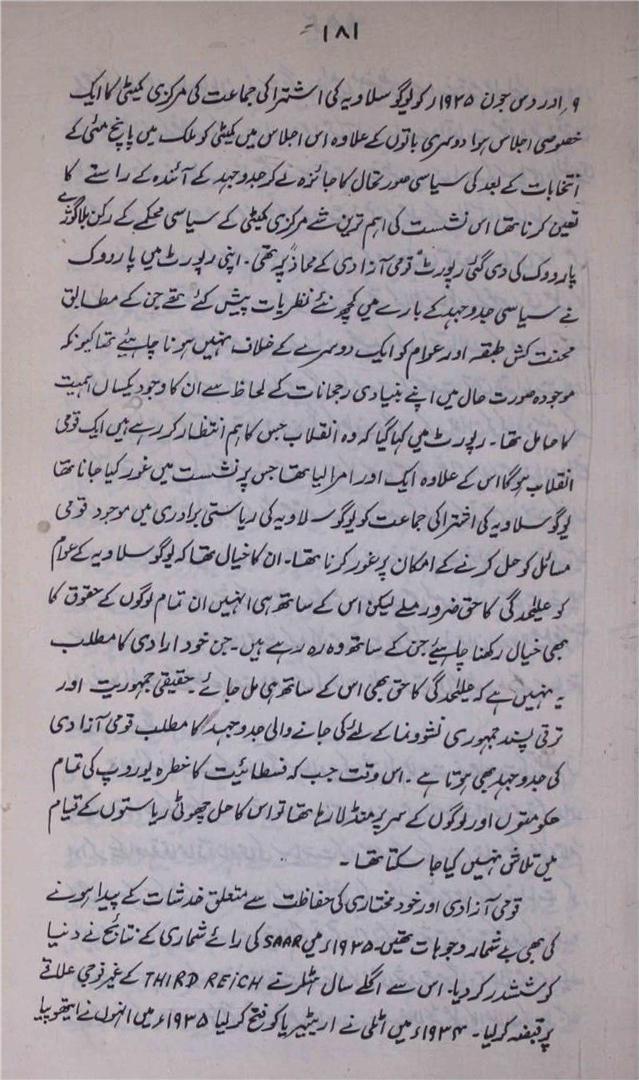 ۱۸۱ -
۹؍ اور دس جون ۱۹۳۵ء کو یوگوسلاویہ کی اشتراکی جماعت کی مرکزی کمیٹی کا ایک
خصوصی اجلاس ہوا دوسری باتوں کے علاوہ اس اجلاس میں کمیٹی کو ملک میں پانچ مئی کے
انتخابات کے بعد کی سیاسی صورتحال کا جائزہ لے کر جدوجہد کے آئندہ کے راستے کا
تعین کرنا تھا اس نشست کی اہم ترین شے مرکزی کمیٹی کے سیاسی محکمے کے رکن بلاگوژے
پارووک کی دی گئی رپورٹ "قومی آزادی کے محاذ" پہ تھی۔ اپنی رپورٹ میں پارووک
نے سیاسی جدوجہد کے بارے میں کچھ نئے نظریات پیش کئے تھے جن کے مطابق
محنت کش طبقہ اور عوام کو ایک دوسرے کے خلاف نہیں ہونا چاہئیے تھا کیونکہ
موجودہ صورت حال میں اپنے بنیادی رجحانات کے لحاظ سے ان کا وجود یکساں اہمیت
کا حامل تھا۔ رپورٹ میں کہا گیا کہ وہ انقلاب جس کا ہم انتظار کر رہے ہیں ایک قومی
انقلاب ہوگا اس کے علاوہ ایک اور امر ایسا تھا جس پر نشست میں غور کیا جانا تھا
یوگوسلاویہ کی اشتراکی جماعت کو یوگوسلاویہ کی ریاستی برادری میں موجود قومی
مسائل کو حل کرنے کے امکان پر غور کرنا تھا۔ ان کا خیال تھا کہ یوگوسلاویہ کے عوام
کو علیٰحدگی کا حق ضرور ملے لیکن اس کے ساتھ ہی انہیں ان تمام لوگوں کے حقوق کا
بھی خیال رکھنا چاہئیے جن کے ساتھ وہ رہ رہے ہیں۔ جن خود ارادی کا مطلب
یہ نہیں ہے کہ علیٰحدگی کا حق بھی اس کے ساتھ ہی مل جائے۔ حقیقی جمہوریت اور
ترقی پسند جمہوری نشوونما کے لئے کی جانے والی جدوجہد کا مطلب قومی آزادی
کی جدوجہد بھی ہوتا ہے۔ اس وقت جب کہ فسطائیت کا خطرہ یوروپ کی تمام
حکومتوں اور لوگوں کے سر پر منڈلا رہا تھا تو اس کا حل چھوٹی ریاستوں کے قیام
میں تلاش نہیں کیا جا سکتا تھا۔
قومی آزادی اور خود مختاری کی حفاظت سے متعلق خدشات کے پیدا ہونے
کی بھی بے شمار وجوہات تھیں۔ ۱۹۳۵ء میں SAAR کی رائے شماری کے نتائج نے دنیا
کو ششدر کر دیا۔ اس سے اگلے سال ہٹلر نے THIRD REICH کے غیر فوجی علاقے
پر قبضہ کر لیا۔ ۱۹۳۴ء میں اٹلی نے اریٹیریا کو فتح کر لیا ۱۹۳۵ء میں انہوں نے ایتھوپیا